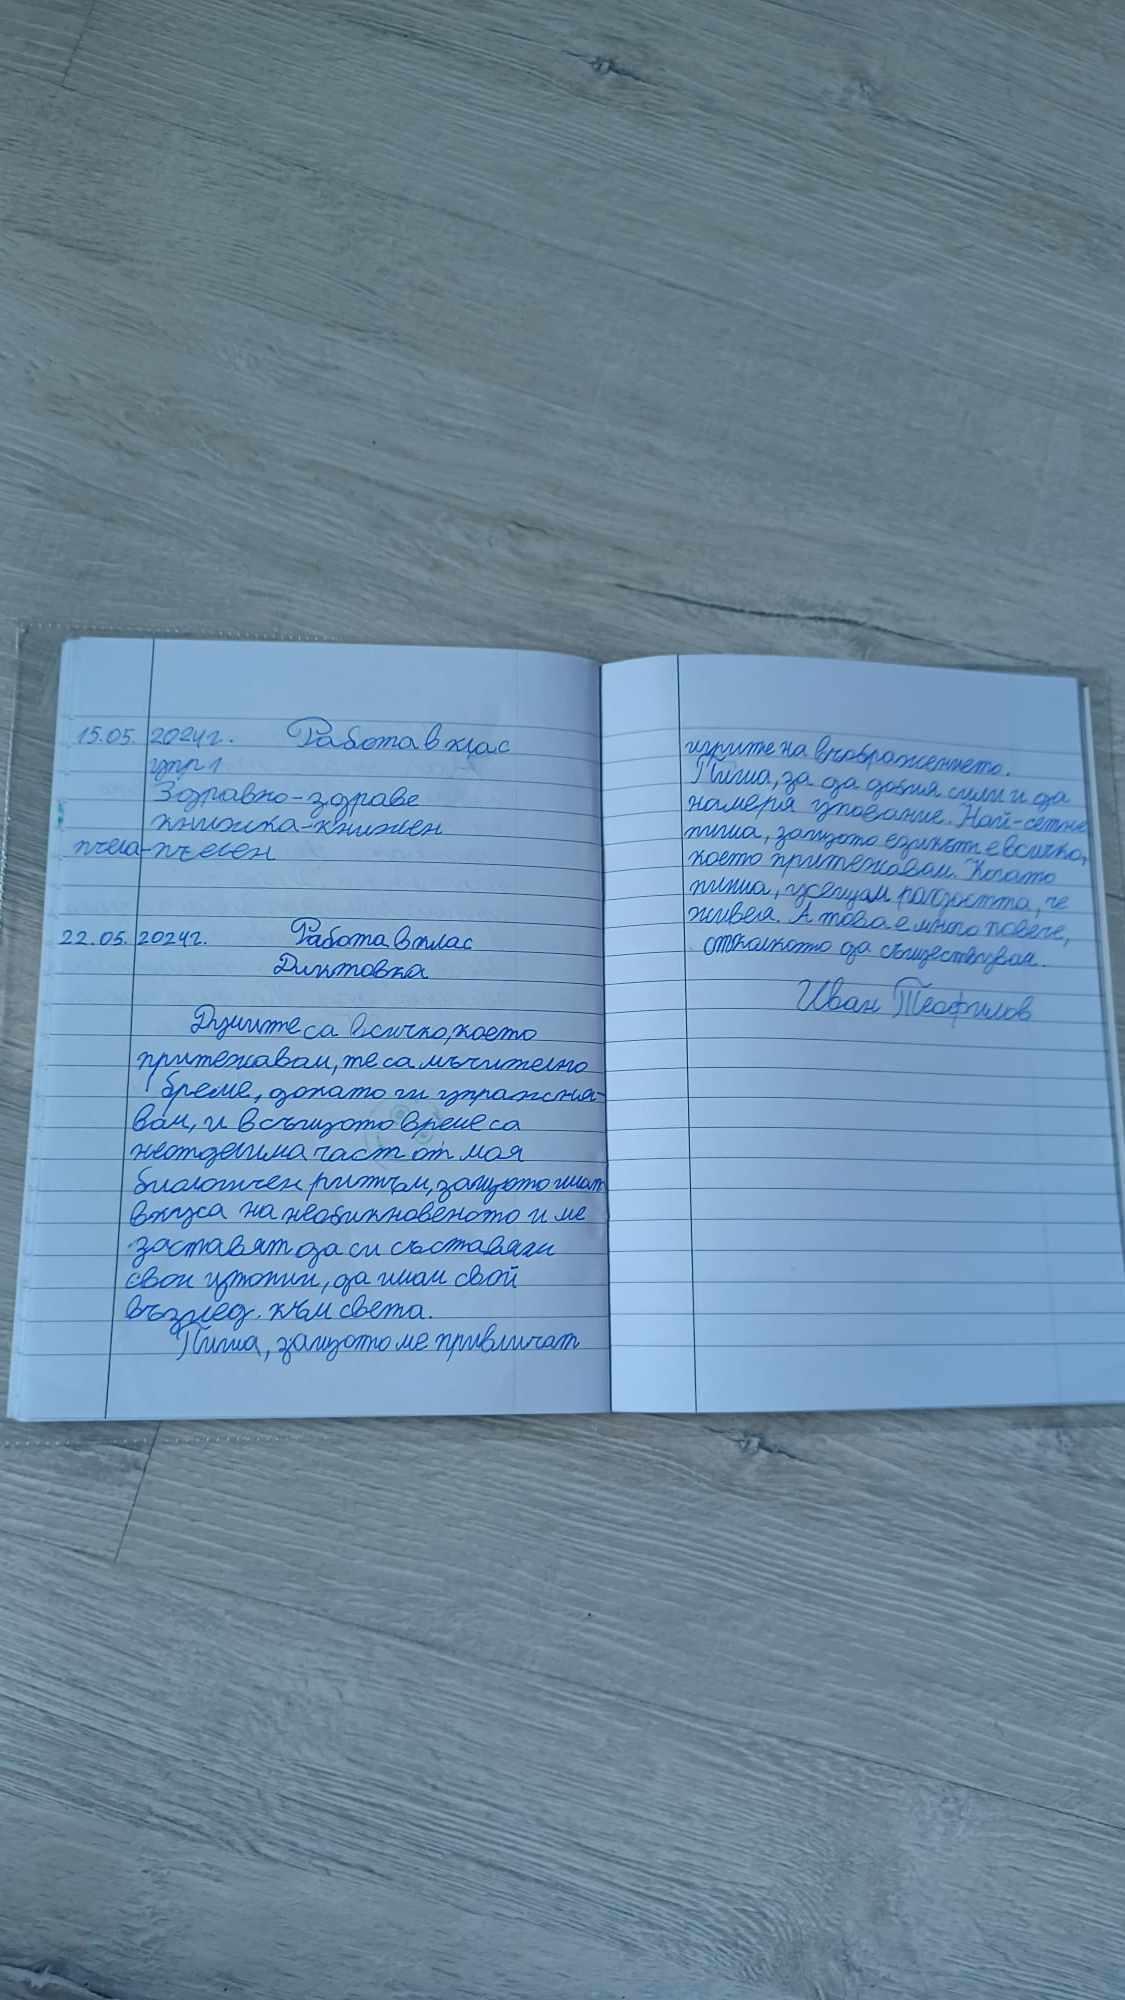 15.05. 2024г. Работа в клас
упр 1
Здравно-здраве
книжка-книжен
пчела-пчелен
22.05. 2024г. Работа в клас
Диктовка
Думите са всичко, което
притежавам, те са мъчително
бреме, докато ги упражня-
вам, и в същото време са
неотделима част от моя
биологичен ритъм, защото имат
вкуса на необикновеното и ме
заставят да си съставям
свои утопии, да имам свой
възглед. към света.
Пиша, защото ме привличат
игрите на въображението.
Пиша, за да добия сили и да
намеря упование. Най-сетне
пиша, защото езикът е всичко,
което притежавам. Когато
пиша, усещам радостта, че
живея. А това е много повече,
отколкото да съществувам.
Иван Теофилов